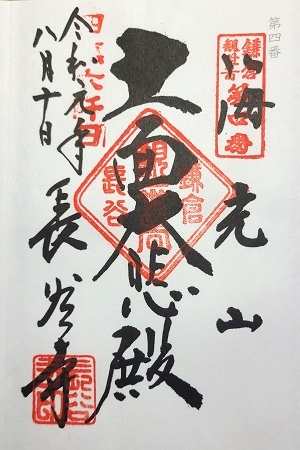 第四番
海光山
鎌倉
観世音
第四番
十一面大悲殿
鎌倉
観世音
長谷
令和元年
八月十日
長谷寺